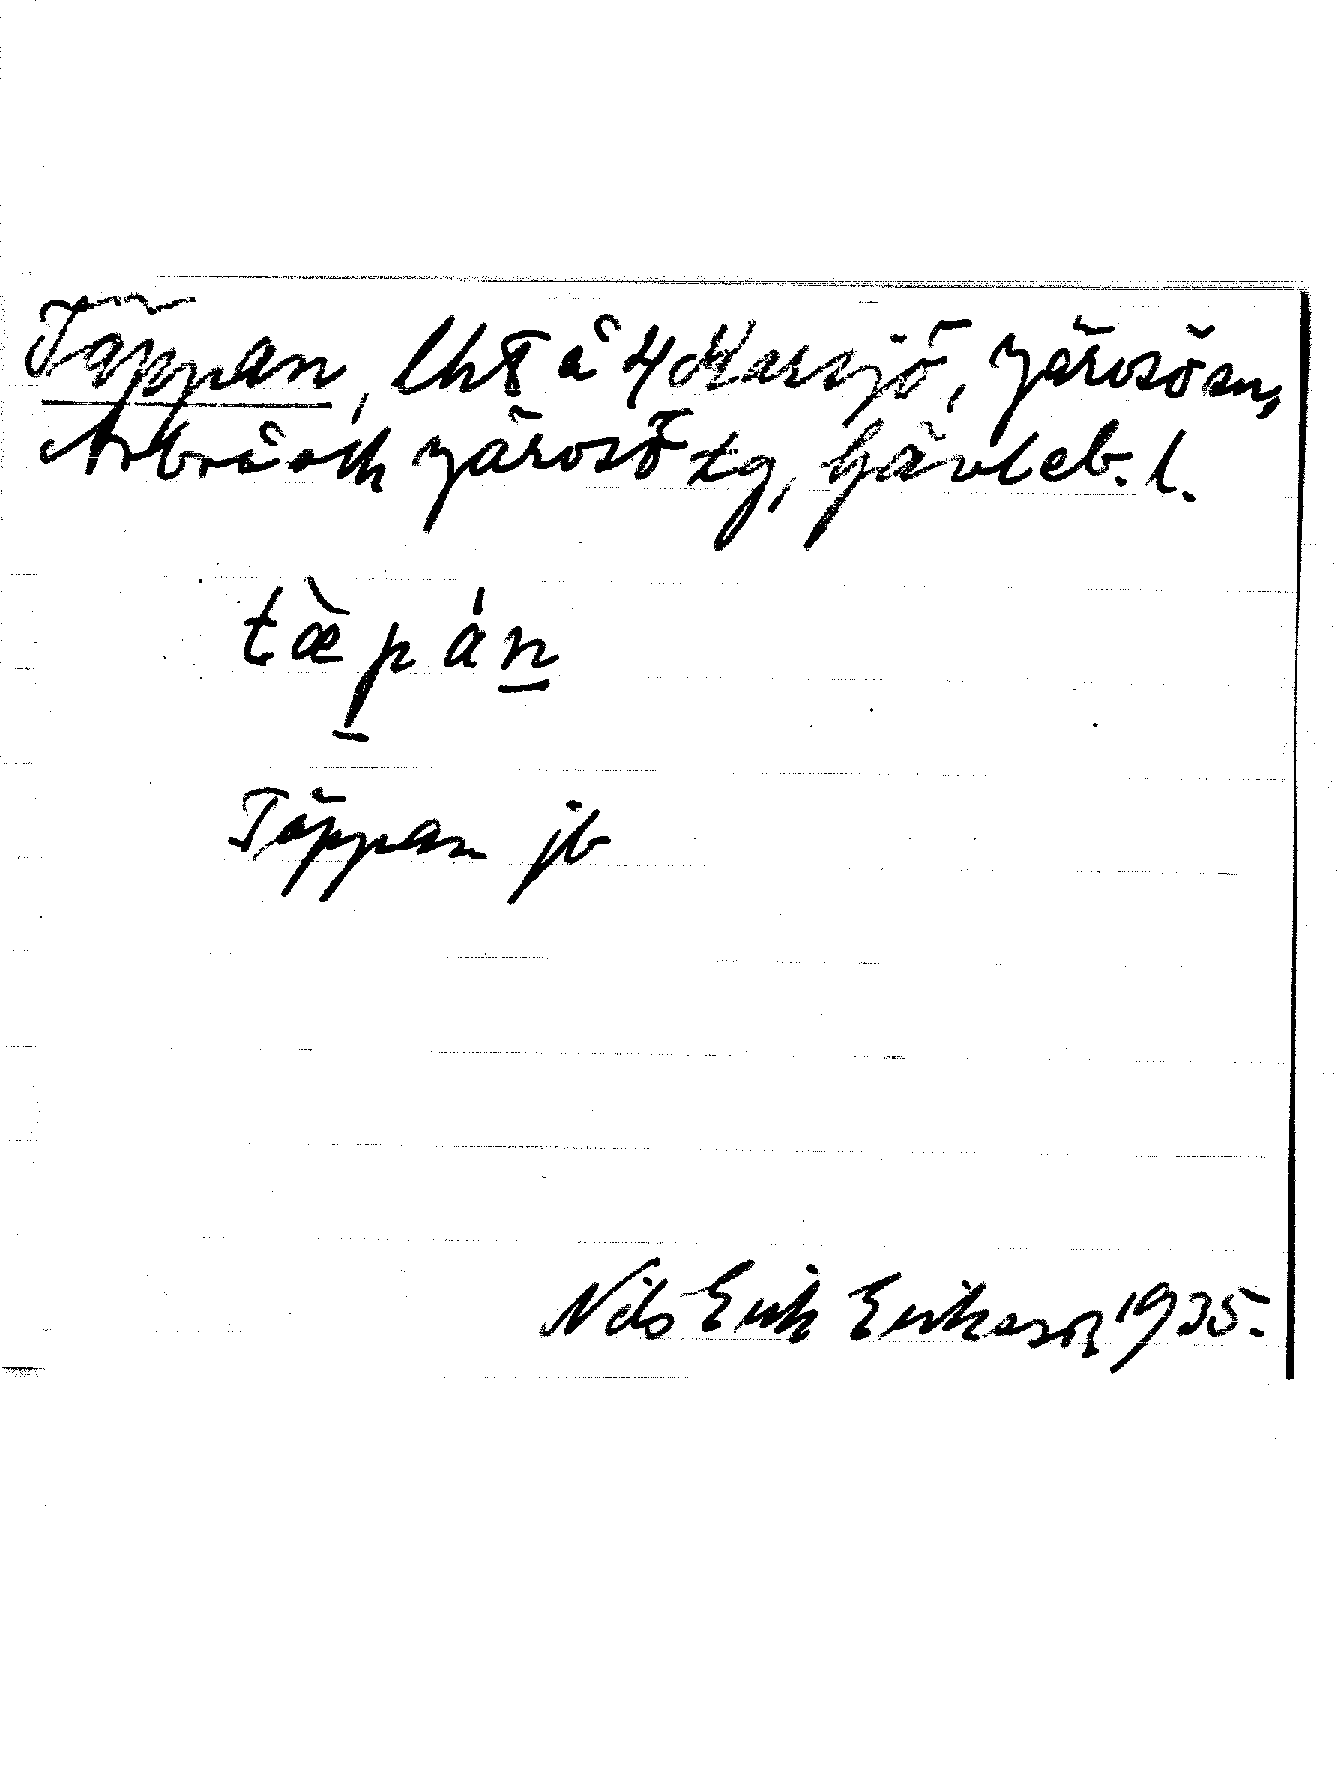 Täppan, lht å 4 Karsjö, Järvsö sn,
Arbrå och Järvsö tg, Gävleb. l.
tæ̀pán
Täppan jb
Nils Erik Eriksson 1935.